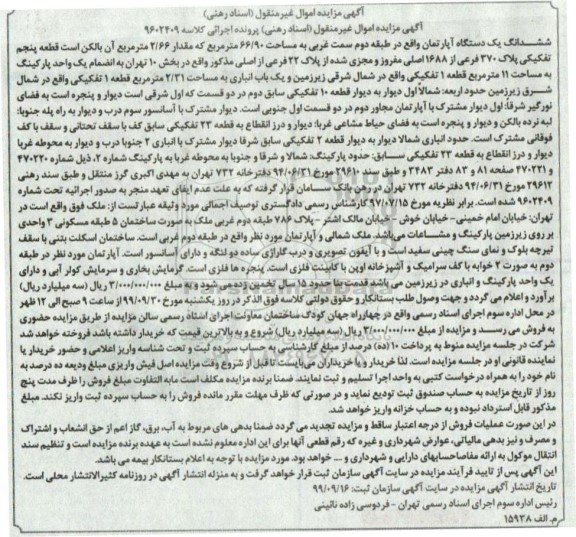 آگهی مزایده اموال غیرمنقول (اسناد رهنی)
آگهی مزایده اموال غیرمنقول (اسناد رهنی) پرونده اجرائی کلاسه ۹۶۰۲۴۰۹
ششدانگ یک دستگاه آپارتمان واقع در طبقه دوم سمت غربی به مساحت ۶۶/۹۰ مترمربع که مقدار ۲/۶۶ مترمربع آن بالکن است قطعه پنجم
تفکیکی پلاک ۳۷۰ فرعی از ۱۶۸۸ اصلی مفروز و مجزی شده از پلاک ۲۲ فرعی از اصلی مذکور واقع در بخش ۱۰ تهران به انضمام یک واحد پارکینگ
به مساحت ۱۱ مترمربع قطعه ۱ تفکیکی واقع در شمال شرقی زیرزمین و یک باب انباری به مساحت ۲/۳۱ مترمربع قطعه ۱ تفکیکی واقع در شمال
شرق زیرزمین حدود اربعه: شمالا اول دیوار به دیوار قطعه ۱۰ تفکیکی سابق دوم در دو قسمت که اول شرقی است دیوار و پنجره است به فضای
نورگیر شرقا: اول دیوار مشترک با آپارتمان مجاور دوم در دو قسمت اول جنوبی است. دیوار مشترک با آسانسور سوم درب و دیوار به راه پله جنوبا:
لبه نرده بالکن و دیوار و پنجره است به فضای حیاط مشاعی غربا: دیوار و درز انقطاع به قطعه ۲۳ تفکیکی سابق کف با سقف تحتانی و سقف با کف
فوقانی مشترک است. حدود انباری شمالا دیوار به دیوار قطعه ۲ تفکیکی سابق شرقا دیوار مشترک با انباری ۲ جنوبا درب و دیوار به محوطه غربا
دیوار و درز انقطاع به قطعه ۲۳ تفکیکی سابق: حدود پارکینگ: شمالا و شرقا و جنوبا به محوطه غربا به پارکینگ شماره ۲، ذیل شماره ۴۷۰۲۲۰
و ۴۷۰۲۲۱ صفحه ۸۱ و ۸۳ دفتر ۲۴۸۳ و طبق سند ۲۹۶۱۰ مورخ ۹۴/۰۶/۳۱ دفترخانه ۷۳۲ تهران به مهدی اکبری گرز منتقل و طبق سند رهنی
۲۹۶۱۲ مورخ ۹۴/۰۶/۳۱ دفترخانه ۷۳۲ تهران در رهن بانک سامان قرار گرفته که به علت عدم ایفای تعهد منجر به صدور اجرائیه تحت شماره
۹۶۰۲۴۰۹ شده است. برابر نظریه مورخ ۹۷/۰۷/۱۵ کارشناس رسمی دادگستری توصیف اجمالی مورد وثیقه عبارتست از: ملک فوق واقع است در
تهران: خیابان امام خمینی - خیابان خوش - خیابان مالک اشتر - پلاک ۷۸۶ طبقه دوم غربی ملک به صورت ساختمان ۵ طبقه مسکونی ۳ واحدی
بر روی زیرزمین پارکینگ و مشاعات می‌باشد. ملک شمالی و آپارتمان مورد نظر واقع در طبقه دوم غربی است. ساختمان اسکلت بتنی با سقف
تیرچه بلوک و نمای سنگ چینی سفید است و با آیفون تصویری و درب گاراژی ساده دو لنگه و دارای آسانسور است. آپارتمان مورد نظر در طبقه
دوم به صورت ۲ خوابه با کف سرامیک و آشپزخانه اوپن با کابینت فلزی است. پنجره ها فلزی است. گرمایش بخاری و سرمایش کولر آبی و دارای
یک واحد پارکینگ و انباری در زیرزمین می باشد قدمت بنا حدود ۱۵ سال تخمین زده می شود و به مبلغ ۳/۰۰۰/۰۰۰/۰۰۰ ریال (سه میلیارد ریال)
برآورد و اعلام می گردد و جهت وصول طلب بستانکار و حقوق دولتی کلاسه فوق الذکر در روز یکشنبه مورخ ۹۹/۰۹/۳۰ از ساعت ۹ صبح الی ۱۲ ظهر
در محل اداره سوم اجرای اسناد رسمی واقع در چهارراه جهان کودک ساختمان معاونت اجرای اسناد رسمی سالن مزایده از طریق مزایده حضوری
به فروش می رسد و مزایده از مبلغ ۳/۰۰۰/۰۰۰/۰۰۰ ریال (سه میلیارد ریال) شروع و به بالاترین قیمت که خریدار داشته باشد فروخته خواهد شد
شرکت در جلسه مزایده منوط به پرداخت ۱۰ (ده) درصد از مبلغ کارشناسی به حساب سپرده ثبت و تحت شناسه واریز اعلامی و حضور خریدار یا
نماینده قانونی او در جلسه مزایده است. لذا خریدار و یا خریداران می‌بایست تا قبل از شروع وقت مزایده اصل فیش واریزی مبلغ ودیعه ده درصد به
نام خود را به همراه درخواست کتبی به واحد اجرا تسلیم و ثبت نمایند. ضمنا برنده مزایده مکلف است مابه التفاوت مبلغ فروش را ظرف مدت پنج
روز از تاریخ مزایده به حساب صندوق ثبت تودیع نماید و در صورتی که ظرف مهلت مقرر مانده فروش را به حساب سپرده ثبت واریز نکند. مبلغ
مذکور قابل استرداد نبوده و به حساب خزانه واریز خواهد شد.
در این صورت عملیات فروش از درجه اعتبار ساقط و مزایده تجدید می گردد ضمنا بدهی های مربوط به آب، برق، گاز اعم از حق انشعاب و اشتراک
و مصرف و نیز بدهی مالیاتی، عوارض شهرداری و غیره که رقم قطعی آنها برای این اداره معلوم نشده است به عهده برنده مزایده است و تنظیم سند
انتقال موکول به ارائه مفاصاحسابهای دارایی و شهرداری و ... خواهد بود. مورد مزایده با توجه به اعلام بستانکار بیمه می باشد.
این آگهی پس از تایید فرآیند مزایده در سایت آگهی سازمان ثبت قرار خواهد گرفت و به منزله انتشار آگهی در روزنامه کثیرالانتشار محلی است.
تاریخ انتشار آگهی مزایده در سایت آگهی سازمان ثبت: ۹۹/۰۹/۱۶
رئیس اداره سوم اجرای اسناد رسمی تهران - فردوسی زاده نائینی
م. الف ۱۵۹۳۸